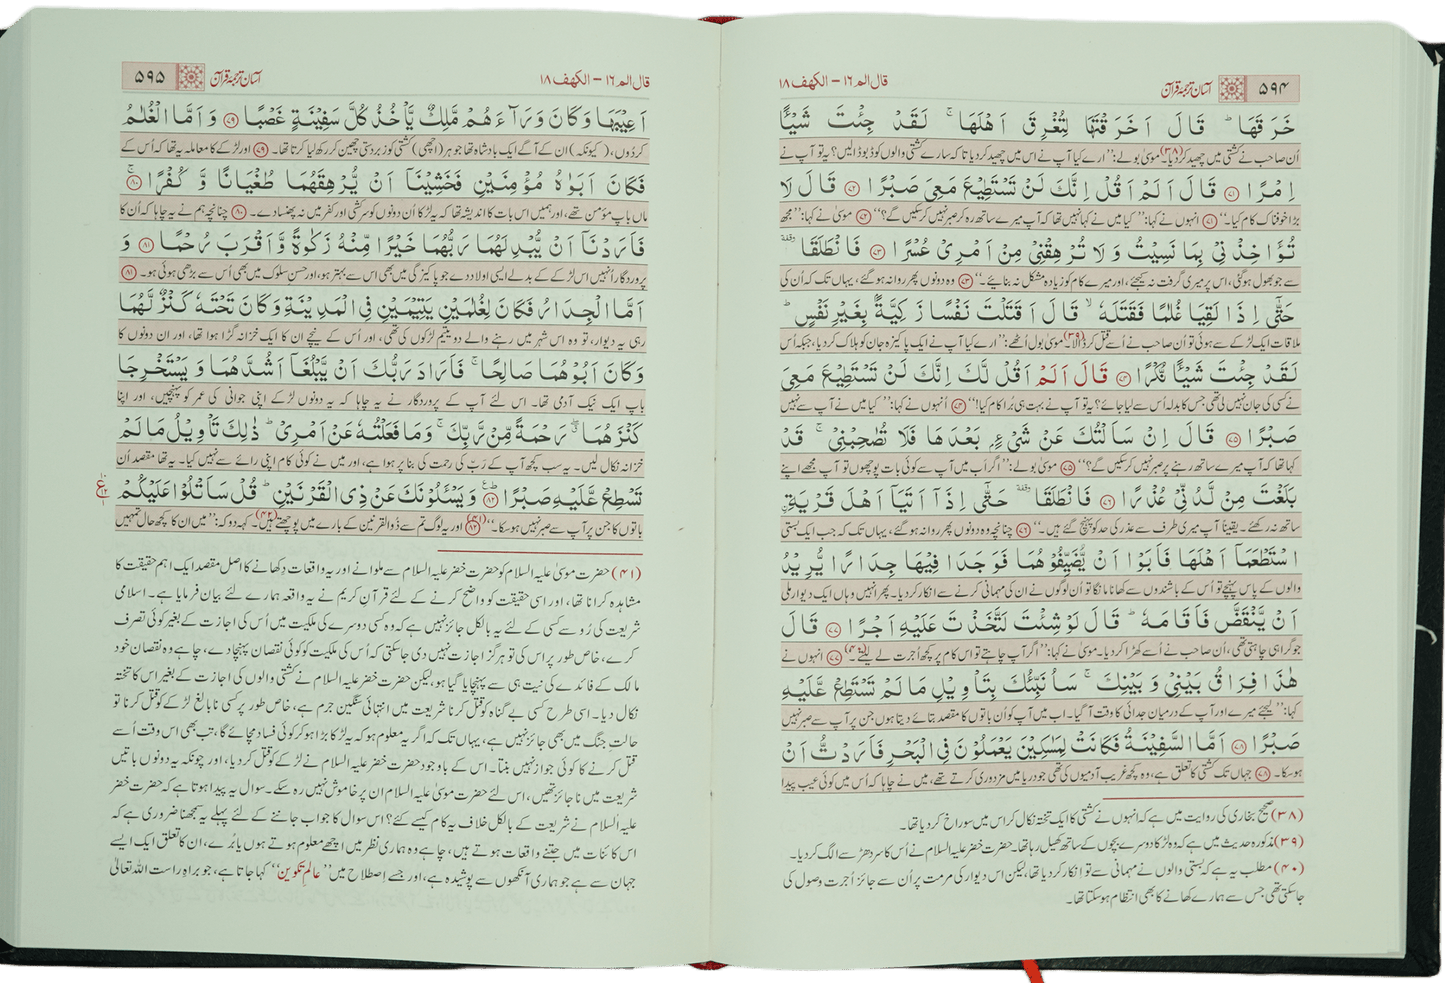 ۵۹۴ آسان ترجمۂ قرآن قال الم ۱۶ – الکہف ۱۸
خَرَقَهَا ؕ قَالَ اَخَرَقْتَهَا لِتُغْرِقَ اَهْلَهَا ۚ لَقَدْ جِئْتَ شَيْـًٔا
اُن صاحب نے کشتی میں چھید کر دیا۔(۳۸) موسیٰ بولے: ’’ارے کیا آپ نے اس میں چھید کر دیا تاکہ سارے کشتی والوں کو ڈبو ڈالیں؟ یہ تو آپ نے
اِمْرًا ﴿۷۱﴾ قَالَ اَلَمْ اَقُلْ اِنَّكَ لَنْ تَسْتَطِيْعَ مَعِيَ صَبْرًا ﴿۷۲﴾ قَالَ لَا
بڑا خوفناک کام کیا۔‘‘ ﴿۷۱﴾ انہوں نے کہا: ’’کیا میں نے کہا نہیں تھا کہ آپ میرے ساتھ رہ کر صبر نہیں کر سکیں گے؟‘‘ ﴿۷۲﴾ موسیٰ نے کہا: ’’مجھ
تُؤَاخِذْنِيْ بِمَا نَسِيْتُ وَ لَا تُرْهِقْنِيْ مِنْ اَمْرِيْ عُسْرًا ﴿۷۳﴾ فَانْطَلَقَا ۥ وقفة
سے جو بھول ہو گئی، اس پر میری گرفت نہ کیجئے، اور میرے کام کو زیادہ مشکل نہ بنائیے۔‘‘ ﴿۷۳﴾ وہ دونوں پھر روانہ ہو گئے، یہاں تک کہ اُن کی
حَتّٰۤى اِذَا لَقِيَا غُلٰمًا فَقَتَلَهٗ ۙ قَالَ اَقَتَلْتَ نَفْسًا زَكِيَّةًۢ بِغَيْرِ نَفْسٍ ؕ
ملاقات ایک لڑکے سے ہوئی تو اُن صاحب نے اُسے قتل کر ڈالا۔(۳۹) موسیٰ بول اُٹھے: ’’ارے کیا آپ نے ایک پاکیزہ جان کو ہلاک کر دیا، جبکہ اُس
لَقَدْ جِئْتَ شَيْـًٔا نُّكْرًا ﴿۷۴﴾ قَالَ اَلَمْ اَقُلْ لَّكَ اِنَّكَ لَنْ تَسْتَطِيْعَ مَعِيَ
نے کسی کی جان نہیں لی تھی جس کا بدلہ اُس سے لیا جائے؟ یہ تو آپ نے بہت ہی بُرا کام کیا!‘‘ ﴿۷۴﴾ اُنہوں نے کہا: ’’کیا میں نے آپ سے نہیں
صَبْرًا ﴿۷۵﴾ قَالَ اِنْ سَاَلْتُكَ عَنْ شَيْءٍۭ بَعْدَهَا فَلَا تُصٰحِبْنِيْ ۚ قَدْ
کہا تھا کہ آپ میرے ساتھ رہنے پر صبر نہیں کر سکیں گے؟‘‘ ﴿۷۵﴾ موسیٰ بولے: ’’اگر اَب میں آپ سے کوئی بات پوچھوں تو آپ مجھے اپنے
بَلَغْتَ مِنْ لَّدُنِّيْ عُذْرًا ﴿۷۶﴾ فَانْطَلَقَا ۥ وقفة حَتّٰۤى اِذَاۤ اَتَيَاۤ اَهْلَ قَرْيَةِ
ساتھ نہ رکھئے۔ یقیناً آپ میری طرف سے عذر کی حد کو پہنچ گئے ہیں۔‘‘ ﴿۷۶﴾ چنانچہ وہ دونوں پھر روانہ ہو گئے، یہاں تک کہ جب ایک بستی
اسْتَطْعَمَاۤ اَهْلَهَا فَاَبَوْا اَنْ يُّضَيِّفُوْهُمَا فَوَجَدَا فِيْهَا جِدَارًا يُّرِيْدُ
والوں کے پاس پہنچے تو اُس کے باشندوں سے کھانا مانگا تو اُن لوگوں نے ان کی مہمانی کرنے سے انکار کر دیا۔ پھر انہیں وہاں ایک دیوار ملی
اَنْ يَّنْقَضَّ فَاَقَامَهٗ ؕ قَالَ لَوْ شِئْتَ لَتَّخَذْتَ عَلَيْهِ اَجْرًا ﴿۷۷﴾ قَالَ
جو گرا ہی چاہتی تھی، اُن صاحب نے اُسے کھڑا کر دیا۔ موسیٰ نے کہا: ’’اگر آپ چاہتے تو اس کام پر کچھ اُجرت لے لیتے۔‘‘(۴۰) ﴿۷۷﴾ انہوں نے
هٰذَا فِرَاقُ بَيْنِيْ وَ بَيْنِكَ ۚ سَاُنَبِّئُكَ بِتَاْوِيْلِ مَا لَمْ تَسْتَطِعْ عَّلَيْهِ
کہا: ’’لیجئے میرے اور آپ کے درمیان جدائی کا وقت آ گیا۔ اب میں آپ کو اُن باتوں کا مقصد بتائے دیتا ہوں جن پر آپ سے صبر نہیں
صَبْرًا ﴿۷۸﴾ اَمَّا السَّفِيْنَةُ فَكَانَتْ لِمَسٰكِيْنَ يَعْمَلُوْنَ فِي الْبَحْرِ فَاَرَدْتُّ اَنْ
ہو سکا۔ ﴿۷۸﴾ جہاں تک کشتی کا تعلق ہے، وہ کچھ غریب آدمیوں کی تھی جو دریا میں مزدوری کرتے تھے، میں نے چاہا کہ اُس میں کوئی عیب پیدا
(۳۸) صحیح بخاری کی روایت میں ہے کہ انہوں نے کشتی کا ایک تختہ نکال کر اس میں سوراخ کر دیا تھا۔
(۳۹) مذکورہ حدیث میں ہے کہ وہ لڑکا دوسرے بچوں کے ساتھ کھیل رہا تھا۔ حضرت خضر علیہ السلام نے اُس کا سر دھڑ سے الگ کر دیا۔
(۴۰) مطلب یہ ہے کہ بستی والوں نے مہمانی سے تو انکار کر دیا تھا، لیکن اس دیوار کی مرمت پر اُن سے جائز اُجرت وصول کی
جا سکتی تھی جس سے ہمارے کھانے کا بھی انتظام ہو سکتا تھا۔
قال الم ۱۶ – الکہف ۱۸ آسان ترجمۂ قرآن ۵۹۵
اَعِيْبَهَا وَ كَانَ وَرَآءَهُمْ مَّلِكٌ يَّاْخُذُ كُلَّ سَفِيْنَةٍ غَصْبًا ﴿۷۹﴾ وَ اَمَّا الْغُلٰمُ
کر دُوں، (کیونکہ) ان کے آگے ایک بادشاہ تھا جو ہر (اچھی) کشتی کو زبردستی چھین کر رکھ لیا کرتا تھا۔ ﴿۷۹﴾ اور لڑکے کا معاملہ یہ تھا کہ اُس کے
فَكَانَ اَبَوٰهُ مُؤْمِنَيْنِ فَخَشِيْنَاۤ اَنْ يُّرْهِقَهُمَا طُغْيَانًا وَّ كُفْرًا ۚ ﴿۸۰﴾
ماں باپ مؤمن تھے، اور ہمیں اس بات کا اندیشہ تھا کہ یہ لڑکا اُن دونوں کو سرکشی اور کفر میں نہ پھنسا دے۔ ﴿۸۰﴾ چنانچہ ہم نے یہ چاہا کہ اُن کا
فَاَرَدْنَاۤ اَنْ يُّبْدِلَهُمَا رَبُّهُمَا خَيْرًا مِّنْهُ زَكٰوةً وَّ اَقْرَبَ رُحْمًا ﴿۸۱﴾ وَ
پروردگار اُنہیں اس لڑکے کے بدلے ایسی اولاد دے جو پاکیزگی میں بھی اس سے بہتر ہو، اور حسنِ سلوک میں بھی اُس سے بڑھی ہوئی ہو۔ ﴿۸۱﴾
اَمَّا الْجِدَارُ فَكَانَ لِغُلٰمَيْنِ يَتِيْمَيْنِ فِي الْمَدِيْنَةِ وَ كَانَ تَحْتَهٗ كَنْزٌ لَّهُمَا
رہی یہ دیوار، تو وہ اس شہر میں رہنے والے دو یتیم لڑکوں کی تھی، اور اُس کے نیچے ان کا ایک خزانہ گڑا ہوا تھا، اور ان دونوں کا
وَ كَانَ اَبُوْهُمَا صَالِحًا ۚ فَاَرَادَ رَبُّكَ اَنْ يَّبْلُغَاۤ اَشُدَّهُمَا وَ يَسْتَخْرِجَا
باپ ایک نیک آدمی تھا۔ اس لئے آپ کے پروردگار نے یہ چاہا کہ یہ دونوں لڑکے اپنی جوانی کی عمر کو پہنچیں، اور اپنا
كَنْزَهُمَا ۖۗ رَحْمَةً مِّنْ رَّبِّكَ ۚ وَ مَا فَعَلْتُهٗ عَنْ اَمْرِيْ ؕ ذٰلِكَ تَاْوِيْلُ مَا لَمْ
خزانہ نکال لیں۔ یہ سب کچھ آپ کے رَبّ کی رحمت کی بنا پر ہوا ہے، اور میں نے کوئی کام اپنی رائے سے نہیں کیا۔ یہ تھا مقصد اُن
تَسْطِعْ عَّلَيْهِ صَبْرًا ﴿۸۲﴾ وَ يَسْـَٔلُوْنَكَ عَنْ ذِي الْقَرْنَيْنِ ؕ قُلْ سَاَتْلُوْا عَلَيْكُمْ
باتوں کا جن پر آپ سے صبر نہیں ہو سکا۔‘‘(۴۱) ﴿۸۲﴾ اور یہ لوگ تم سے ذُوالقرنین کے بارے میں پوچھتے ہیں۔(۴۲) کہہ دو کہ: ’’میں ان کا کچھ حال تمہیں
(۴۱) حضرت موسیٰ علیہ السلام کو حضرت خضر علیہ السلام سے ملوانے اور یہ واقعات دکھانے کا اصل مقصد ایک اہم حقیقت کا
مشاہدہ کرانا تھا، اور اسی حقیقت کو واضح کرنے کے لئے قرآنِ کریم نے یہ واقعہ ہمارے لئے بیان فرمایا ہے۔ اسلامی
شریعت کی رُو سے کسی کے لئے یہ بالکل جائز نہیں ہے کہ وہ کسی دوسرے کی ملکیت میں اُس کی اجازت کے بغیر کوئی تصرف
کرے، خاص طور پر اس کی تو ہرگز اجازت نہیں دی جا سکتی کہ اُس کی ملکیت کو کوئی نقصان پہنچا دے، چاہے وہ نقصان خود
مالک کے فائدے کی نیت ہی سے پہنچایا گیا ہو، لیکن حضرت خضر علیہ السلام نے کشتی والوں کی اجازت کے بغیر اس کا تختہ
نکال دیا۔ اسی طرح کسی بے گناہ کو قتل کرنا شریعت میں انتہائی سنگین جرم ہے، خاص طور پر کسی نابالغ لڑکے کو قتل کرنا تو
حالتِ جنگ میں بھی جائز نہیں ہے، یہاں تک کہ اگر یہ معلوم ہو کہ یہ لڑکا بڑا ہو کر کوئی فساد مچائے گا، تب بھی اس وقت اُسے
قتل کرنے کا کوئی جواز نہیں بنتا۔ اس کے باوجود حضرت خضر علیہ السلام نے لڑکے کو قتل کر دیا، اور چونکہ یہ دونوں باتیں
شریعت میں ناجائز تھیں، اس لئے حضرت موسیٰ علیہ السلام ان پر خاموش نہیں رہ سکے۔ سوال یہ پیدا ہوتا ہے کہ حضرت خضر
علیہ السلام نے شریعت کے بالکل خلاف یہ کام کیسے کئے؟ اس سوال کا جواب جاننے کے لئے پہلے یہ سمجھنا ضروری ہے کہ
اس کائنات میں جتنے واقعات ہوتے ہیں، چاہے وہ ہماری نظر میں اچھے معلوم ہوتے ہوں یا بُرے، ان کا تعلق ایک ایسے
جہان سے ہے جو ہماری آنکھوں سے پوشیدہ ہے، اور جسے اِصطلاح میں ’’عالمِ تکوین‘‘ کہا جاتا ہے، جو براہِ راست اللہ تعالیٰ